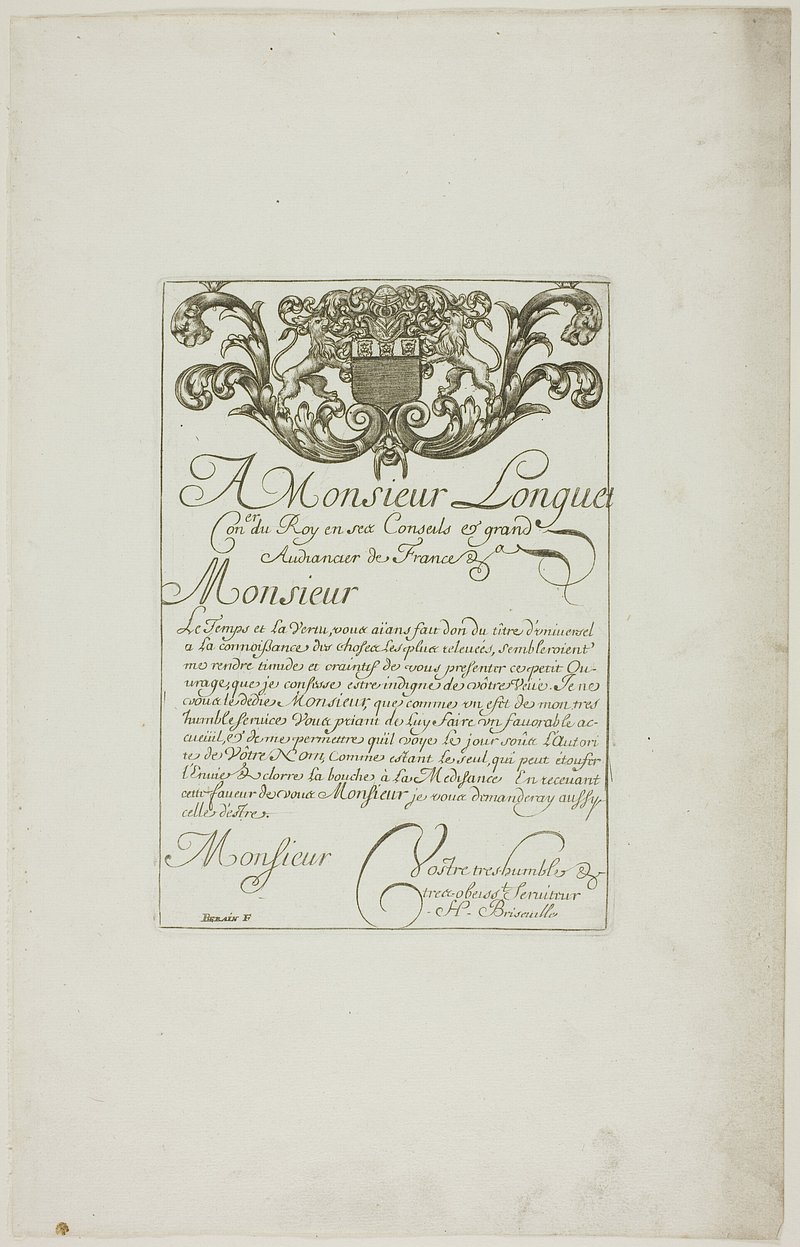 A Monsieur Longuet
Con.er du Roy en ses Conseils & grand
Audiancier de France &a
Monsieur
Le Temps et la Vertu, vous aïans fait don du tître d'vniuersel
a la connoißance des choses les plus releueés, sembleroient
me rendre timide et craintif de vous presenter ce petit Ou-
urage, que je confesse estre indigne de vôtre Veüe. Je ne
vous le dedie Monsieur, que comme vn efet de mon tres
humble seruice Vous priant de luy faire vn fauorable ac-
cueüil, & de me permettre qu'il voye le jour soûs l'Autori
te de Vôtre Nom, Comme estant le seul, qui peut étoufer
l'Enuie & clorre la bouche à la Medisance En receuant
cette faueur de vous Monsieur je vous demanderay aussy
celle d'estre.
Monsieur
Vostre tres humble &
tres-obeisst. Seruiteur
- H - Briseuille
BERAIN F